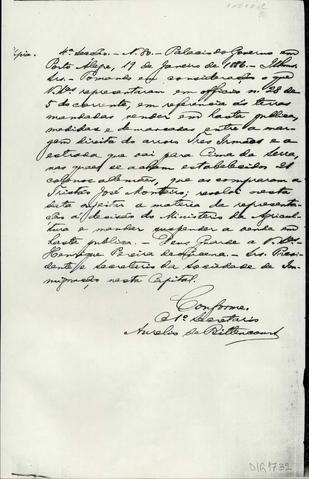 Cópia. 4ª Secção. - N. 80. - Palacio do Governo em
Porto Alegre, 19 de Janeiro de 1886. - Illmos.
Srs. - Tomando em consideração o que
V.Sas representaram em officio n. 28 de
5 do corrente, em referencia ás terras
mandadas vender em hasta publica,
medidas e demarcadas entre a mar-
gem direita do arroio Tres Irmãos e a
estrada que vai para Cima da Serra,
nas quaes se acham estabelecidos 21
colonos allemães, que as compraram a
Tristão José Monteiro; resolvi nesta
data sujeitar a materia da representa-
ção á decisão do Ministerio da Agricul-
tura e mandar suspender a venda em
hasta publica. - Deus Guarde a V.Sas
Henrique Pereira de Lucena. - Srs. Presi-
dente e Secretario da Sociedade de Im-
migração nesta Capital.
Conforme.
O 1º Secretario
Aurelio de Bittencourt